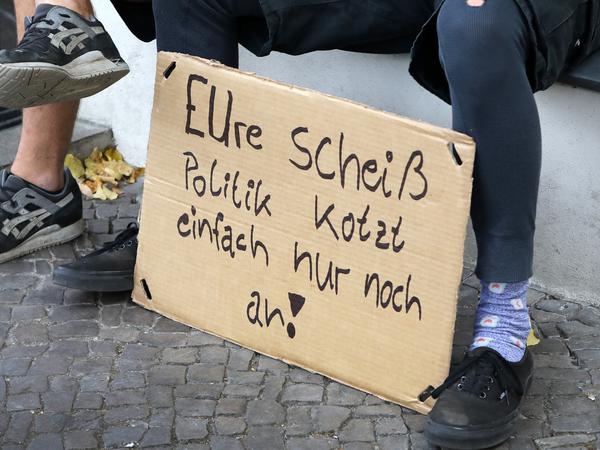 EUre Scheiß
Politik kotzt
einfach nur noch
an!